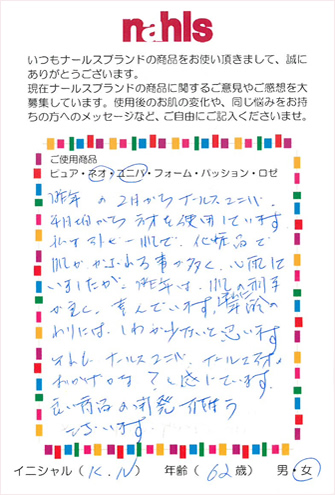 nahls
いつもナールスブランドの商品をお使い頂きまして、誠に
ありがとうございます。
現在ナールスブランドの商品に関するご意見やご感想を大
募集しています。使用後のお肌の変化や、同じ悩みをお持
ちの方へのメッセージなど、ご自由にご記入くださいませ。
ご使用商品
ピュア・ネオ・ユニバ・フォーム・パッション・ロゼ
昨年の2月からナールスユニバ、
4月頃からネオを使用しています。
私はアトピー肌で、化粧品で
肌がかぶれる事が多く、心配して
いましたが、昨年は、肌の調子
が良く、喜んでいます。年齢の
わりには、しわが少ないと思います
それも、ナールスユニバ、ナールスネオの
おかげかな?と感じています。
良い商品の開発、有難う
ございます。
イニシャル(K.N) 年齢(62歳) 男・女